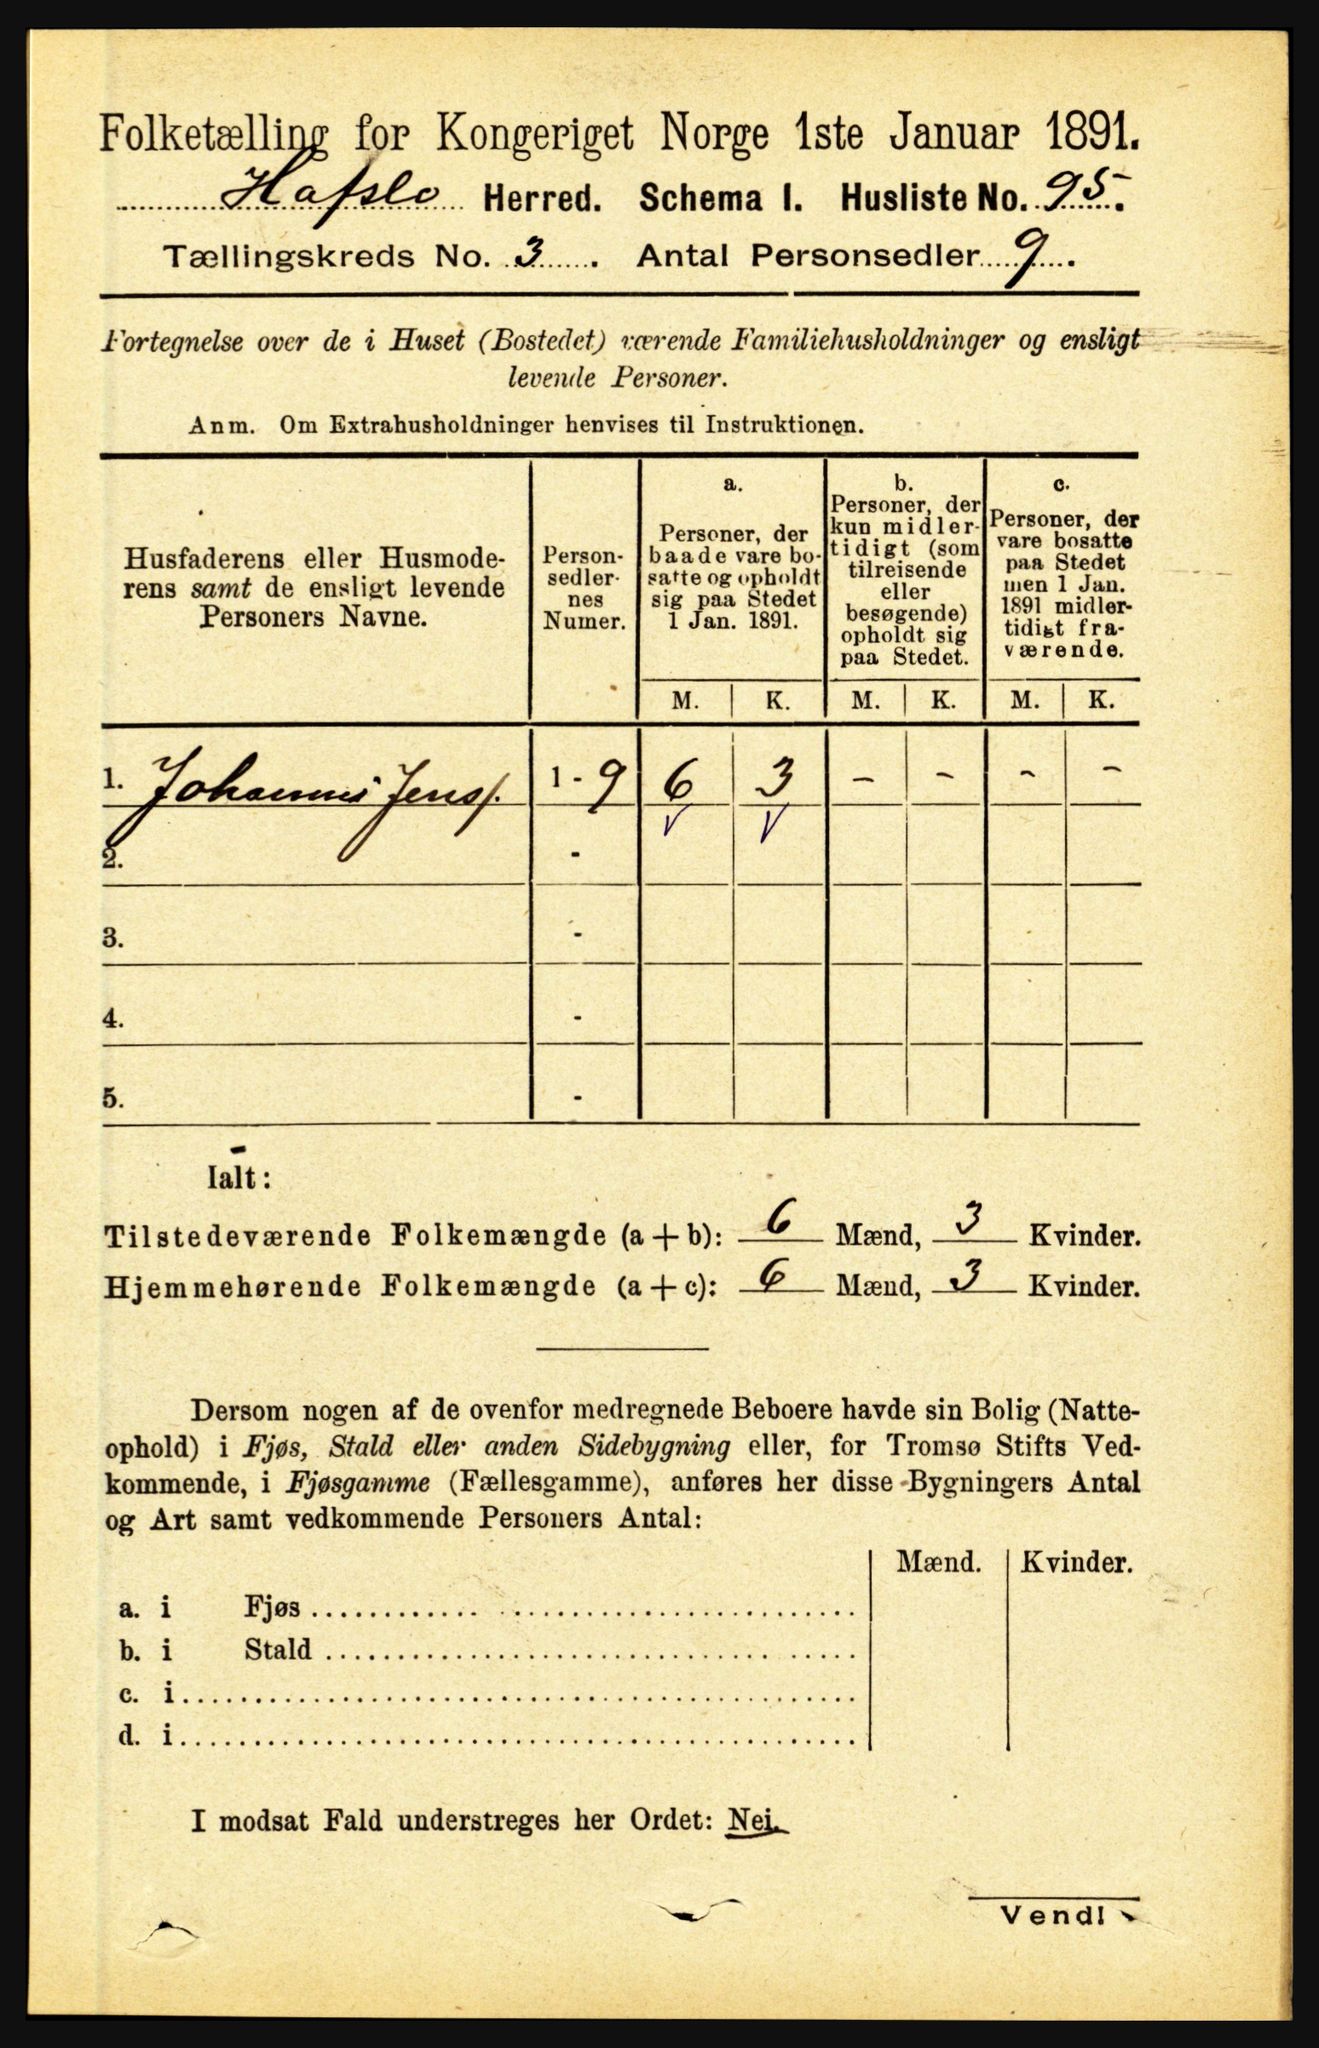 Folketælling for Kongeriget Norge 1ste Januar 1891.
Hafslo Herred. Schema I. Husliste No. 95.
Tællingskreds No. 3. Antal Personsedler 9.
Fortegnelse over de i Huset (Bostedet) værende Familiehusholdninger og ensligt
levende Personer.
Anm. Om Extrahusholdninger henvises til Instruktionen.
Husfaderens eller Husmode-
rens samt de ensligt levende
Personers Navne.
Person-
sedler-
nes
Numer.
a.
Personer, der
baade vare bo-
satte og opholdt
sig paa Stedet
1 Jan. 1891.
b.
Personer, der
kun midler-
tidigt (som
tilreisende
eller
besøgende)
opholdt sig
paa Stedet.
c.
Personer, der
vare bosatte
paa Stedet
men 1 Jan.
1891 midler-
tidigt fra-
værende.
M. K. M. K. M. K.
1. Johannes Jens. 1 - 9 6 3 - - - -
2. -
3. -
4. -
5. -
Ialt:
Tilstedeværende Folkemængde (a + b): 6 Mænd, 3 Kvinder.
Hjemmehørende Folkemængde (a + c): 6 Mænd, 3 Kvinder.
Dersom nogen af de ovenfor medregnede Beboere havde sin Bolig (Natte-
ophold) i Fjøs, Stald eller anden Sidebygning eller, for Tromsø Stifts Ved-
kommende, i Fjøsgamme (Fællesgamme), anføres her disse Bygningers Antal
og Art samt vedkommende Personers Antal:
Mænd. Kvinder.
a. i Fjøs
b. i Stald
c. i
d. i
I modsat Fald understreges her Ordet: Nei.
Vend!